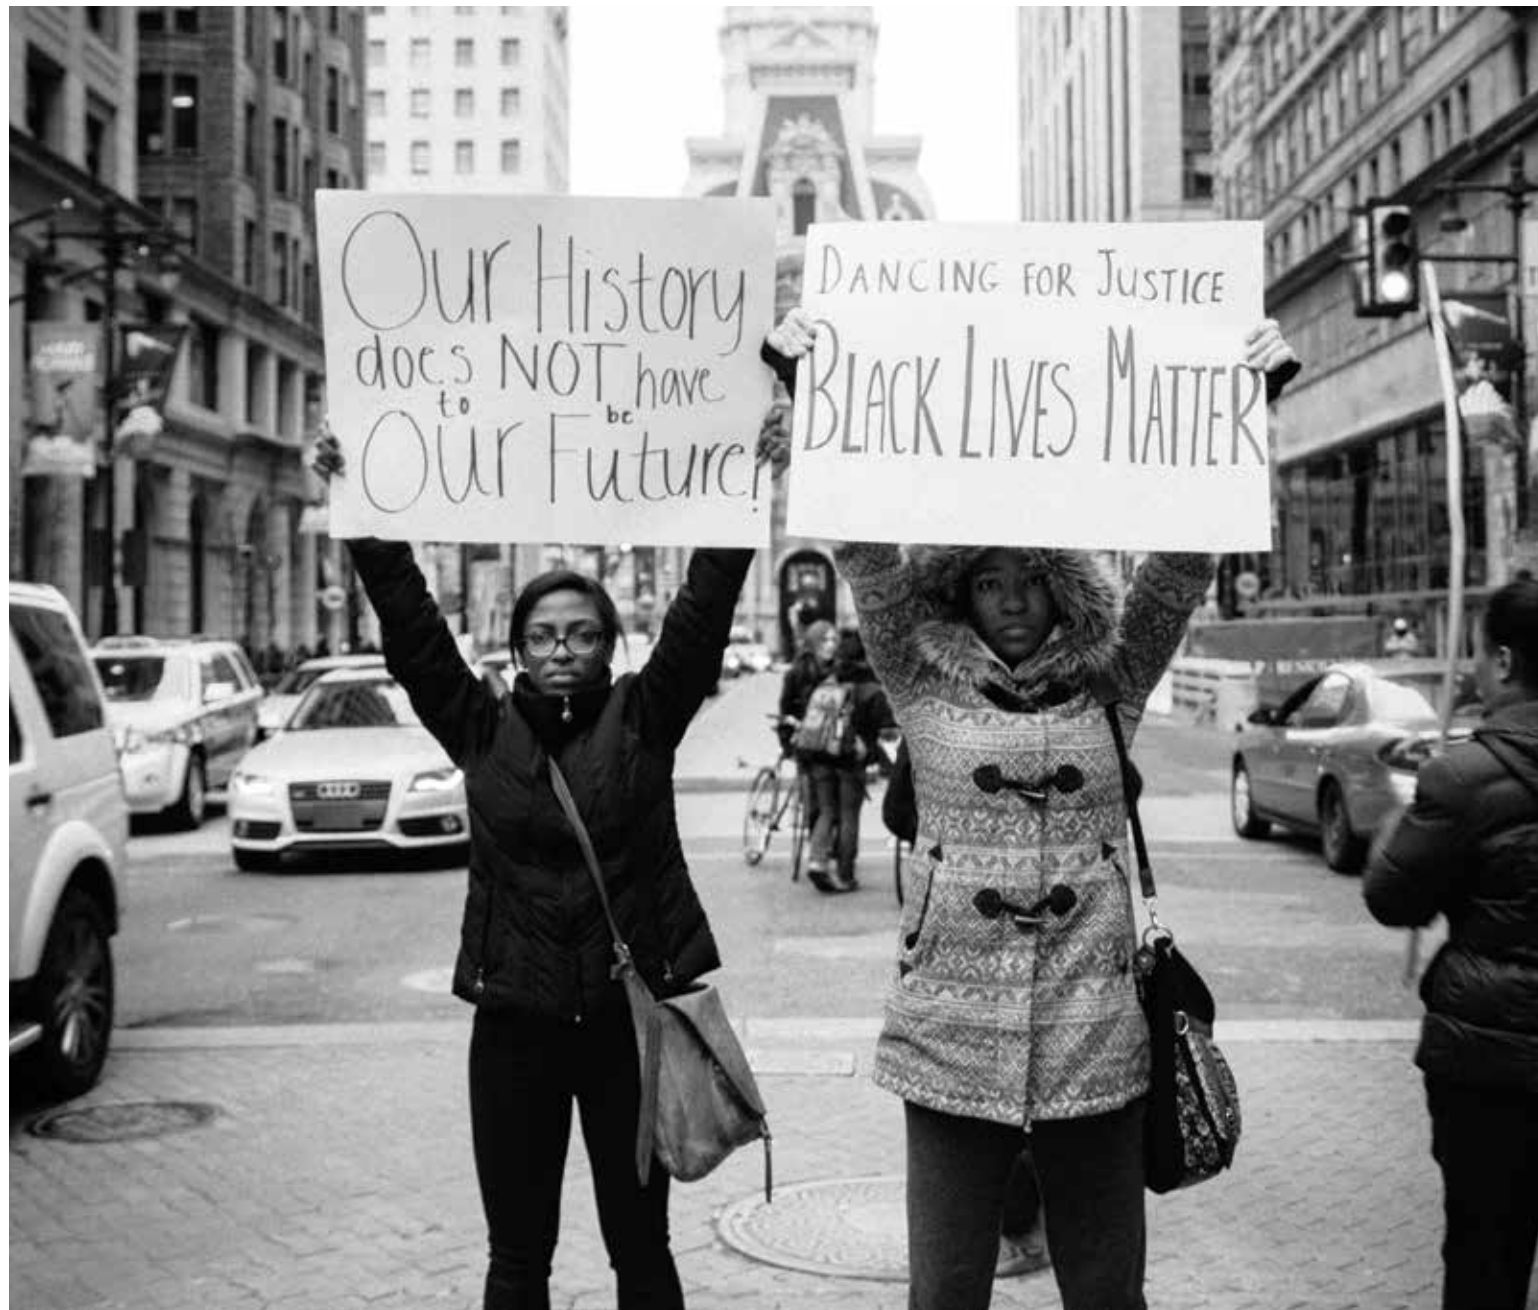 Our History
does NOT have
to be
Our Future!
DANCING FOR JUSTICE
BLACK LIVES MATTER